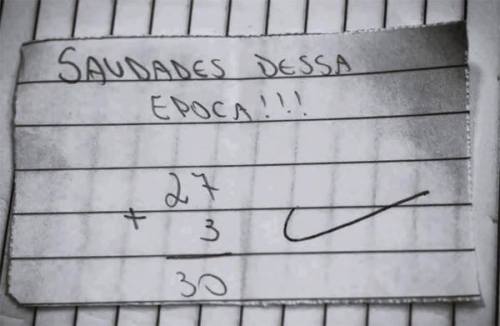 SAUDADES DESSA
EPOCA!!!
27
+ 3
30